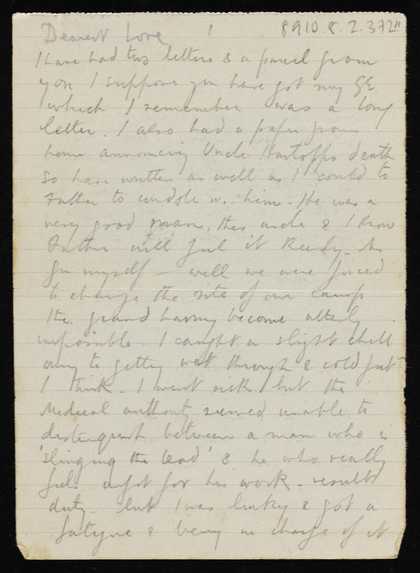 8910.8.2.372
Dearest Love
I have had two letters & a parcel from
you I suppose you have got my
which I remember was a long
letter. I also had a paper from
home announcing Uncle death
so have written as well as I could to
Father to condole w. him. He was a
very good man, this uncle & I know
Father will feel it keenly. As
for myself - well we were forced
to change the site of our camp
the ground having become utterly
impossible. I caught a slight chill
owing to getting wet through & cold feet
I think. I went sick but the
Medical authority seemed unable to
distinguish between a man who is
'slinging the lead' & he who really
feels unfit for his work - result
duty. but I was lucky & got a
fatigue & being in charge of it